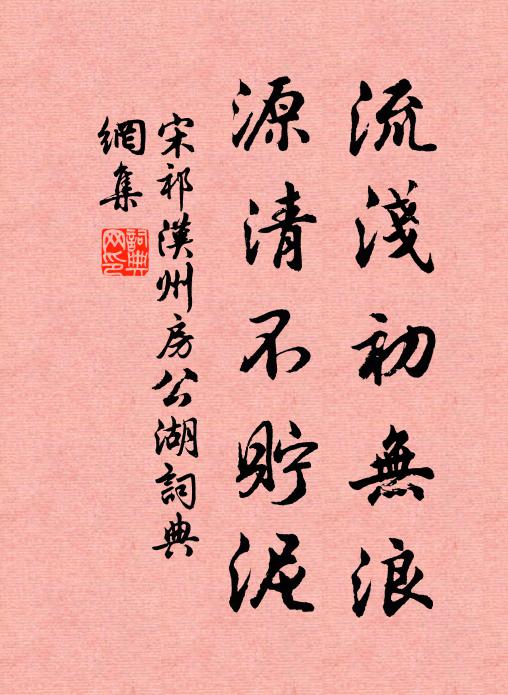 流淺初無浪
源清不貯泥
宋祁漢州房公湖詞典
網集
詞典網印